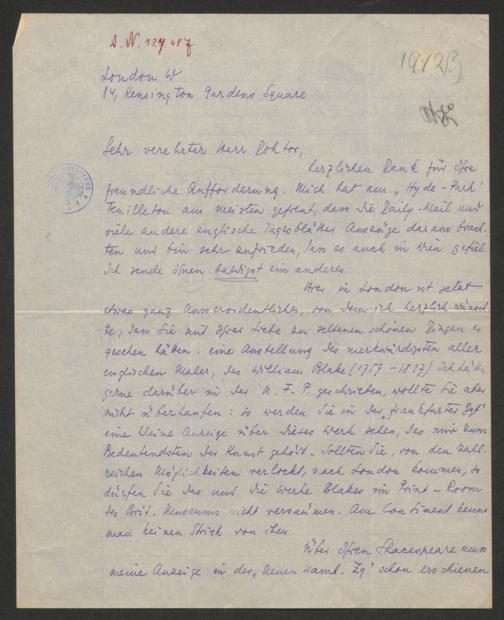 A. N. 137 487
1912(?)
London W
84, Kensington Gardens Square
Sehr verehrter Herr Doktor,
herzlichen Dank für Ihre
freundliche Aufforderung. Mich hat am „Hyde-Park"
Feuilleton am meisten gefreut, dass die Daily-Mail und
viele andere englische Tagesblätter Auszüge daraus brach-
ten und bin sehr zufrieden, dass es auch in Wien gefiel
Ich sende Ihnen baldigst ein anderes.
Hier in London ist jetzt
etwas ganz Ausserordentliches, von dem ich herzlich wünsch-
te, dass Sie mit Ihrer Liebe zu seltenen schönen Dingen es
gesehen hätten: eine Austellung des merkwürdigsten aller
englischen Maler, des William Blake (1757 – 1827) Ich hätte
gerne darüber in der N. F. P. geschrieben, wollte Sie aber
nicht überlaufen: so werden Sie in der „Frankfurter Ztg"
eine kleine Anzeige über dieses Werk sehen, das mir zum
Bedeutendsten der Kunst gehört. Sollten Sie, von den zahl-
reichen Möglichkeiten verlockt, nach London kommen, so
dürfen Sie das und die Werke Blakes im Print-Room
des Brit. Museums nicht versäumen. Am Continent kennt
man keinen Strich von ihm.
Über Ihren Shakespeare muss
meine Anzeige in der „Neuen Hamb. Zg" schon erschienen